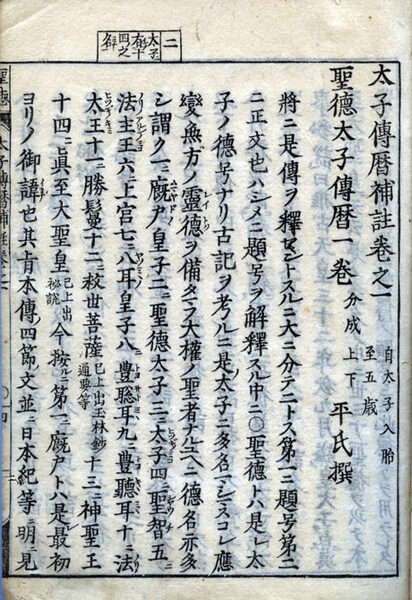 太子傳暦補註巻之一 自太子入胎至五歳
聖德太子傳暦一巻 分成上下 平氏撰
將ニ是傳ヲ釋セントスルニ大ニ分テニトス第一ニ題号第二
ニ正文也ハシメニ題号ヲ解釋スル中ニ〇聖德トハ是レ太
子ノ德号ナリ古記ヲ考ルニ是太子ニ多名マシマスコレ應
變無方ノ靈德ヲ備タマフ大權ノ聖者ナルユヘニ德名亦多
シ謂ク一ニ廐戸皇子二ニ聖德太子三ニ太子四ニ聖智五ニ
法主王六ニ上宮七ニ八耳皇子八ニ豊聡耳九ニ豊聽耳十ニ法
太王十一ニ勝鬘十二ニ救世菩薩 已上出玉林鈔通要等 十三ニ神聖王
十四ニ眞至大聖皇 已上出秘説 今按ルニ第一ニ廐戸トハ是レ最初
ヨリノ御諱也其肯本傳四節文並ニ日本紀等ニ明ニ見
二
太子
有十
四之
聖德
太子傳暦補註巻之一